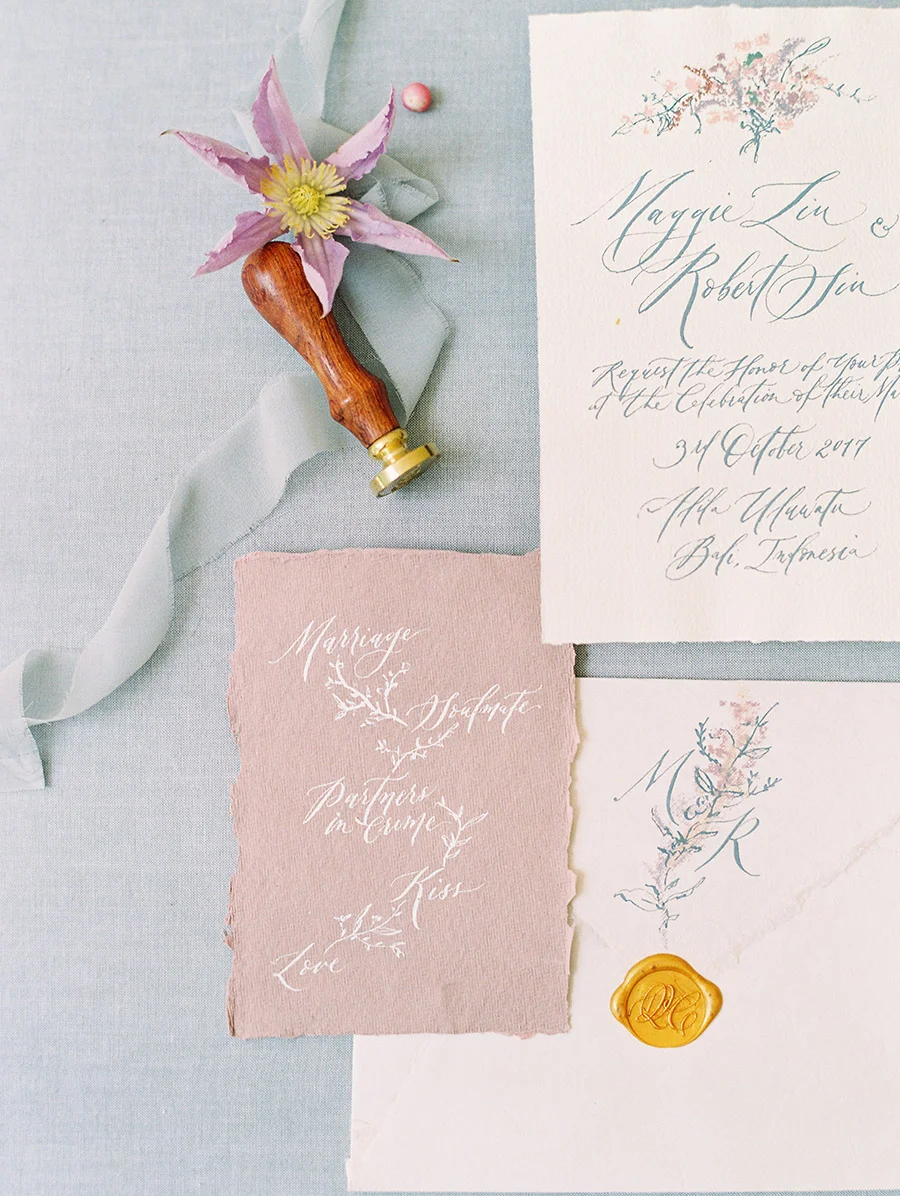 Maggie Lin &
Robert Sin
Request the Honor of Your
at the Celebration of their
3rd October 2017
Alila Uluwatu
Bali, Indonesia
Marriage
Soulmate
Partners
in Crime
Kiss
Love
M
&
R